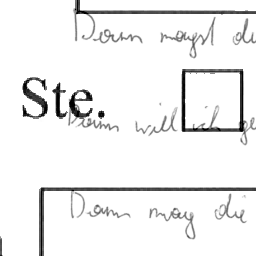 Dann magst di
Ste.
Dann will ich ge
Dann mag die